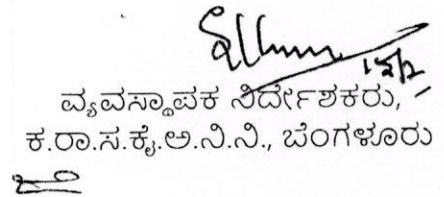 ವ್ಯವಸ್ಥಾಪಕ ನಿರ್ದೇಶಕರು,
ಕ.ರಾ.ಸ.ಕೈ.ಅ.ನಿ.ನಿ., ಬೆಂಗಳೂರು